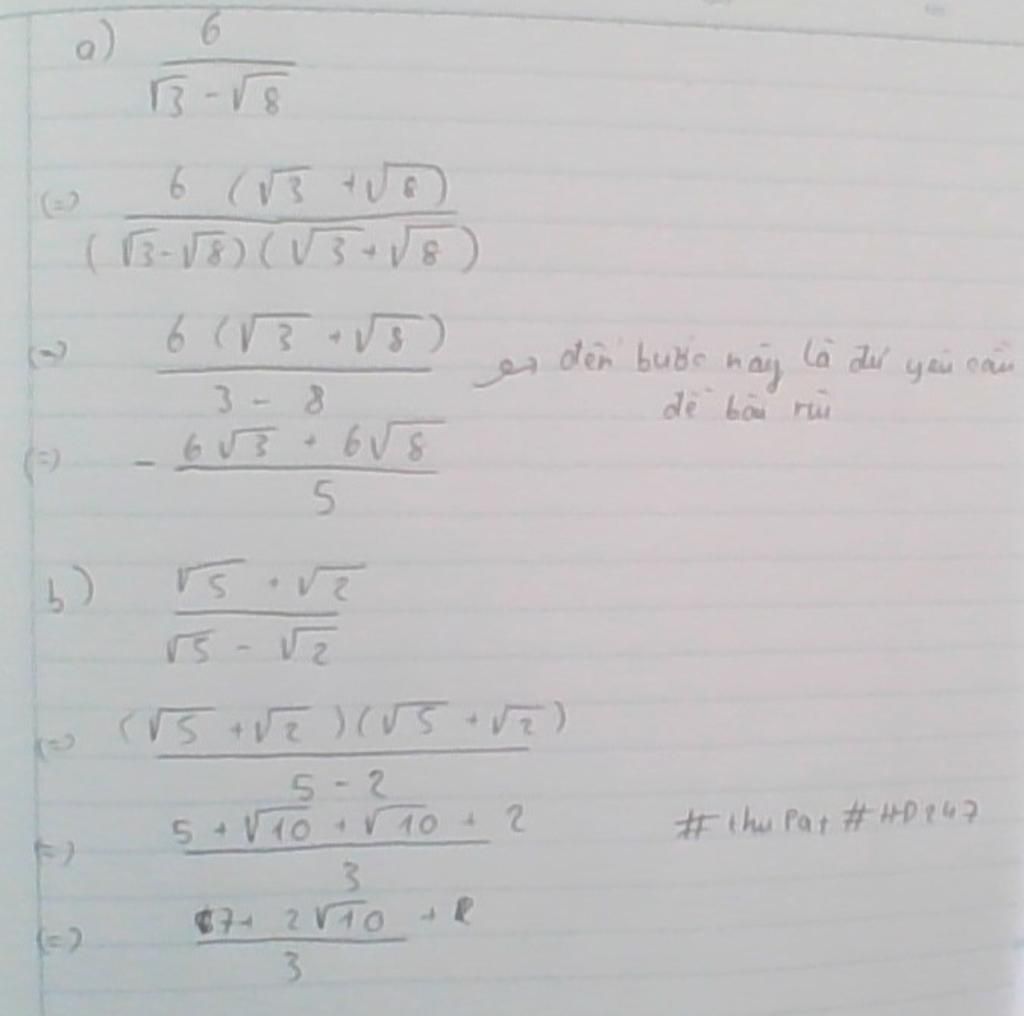 a) 6 / (√3 - √8)
(=) 6 (√3 + √8) / (√3-√8)(√3+√8)
(=) 6 (√3 + √8) / 3 - 8 → đến bước này là đủ yêu cầu
đề bài rùi
(=) - 6√3 + 6√8 / 5
b) √5 + √2 / √5 - √2
(=) (√5 + √2)(√5 + √2) / 5 - 2
(=) 5 + √10 + √10 + 2 / 3
# HD247
(=) 7+ 2√10 / 3